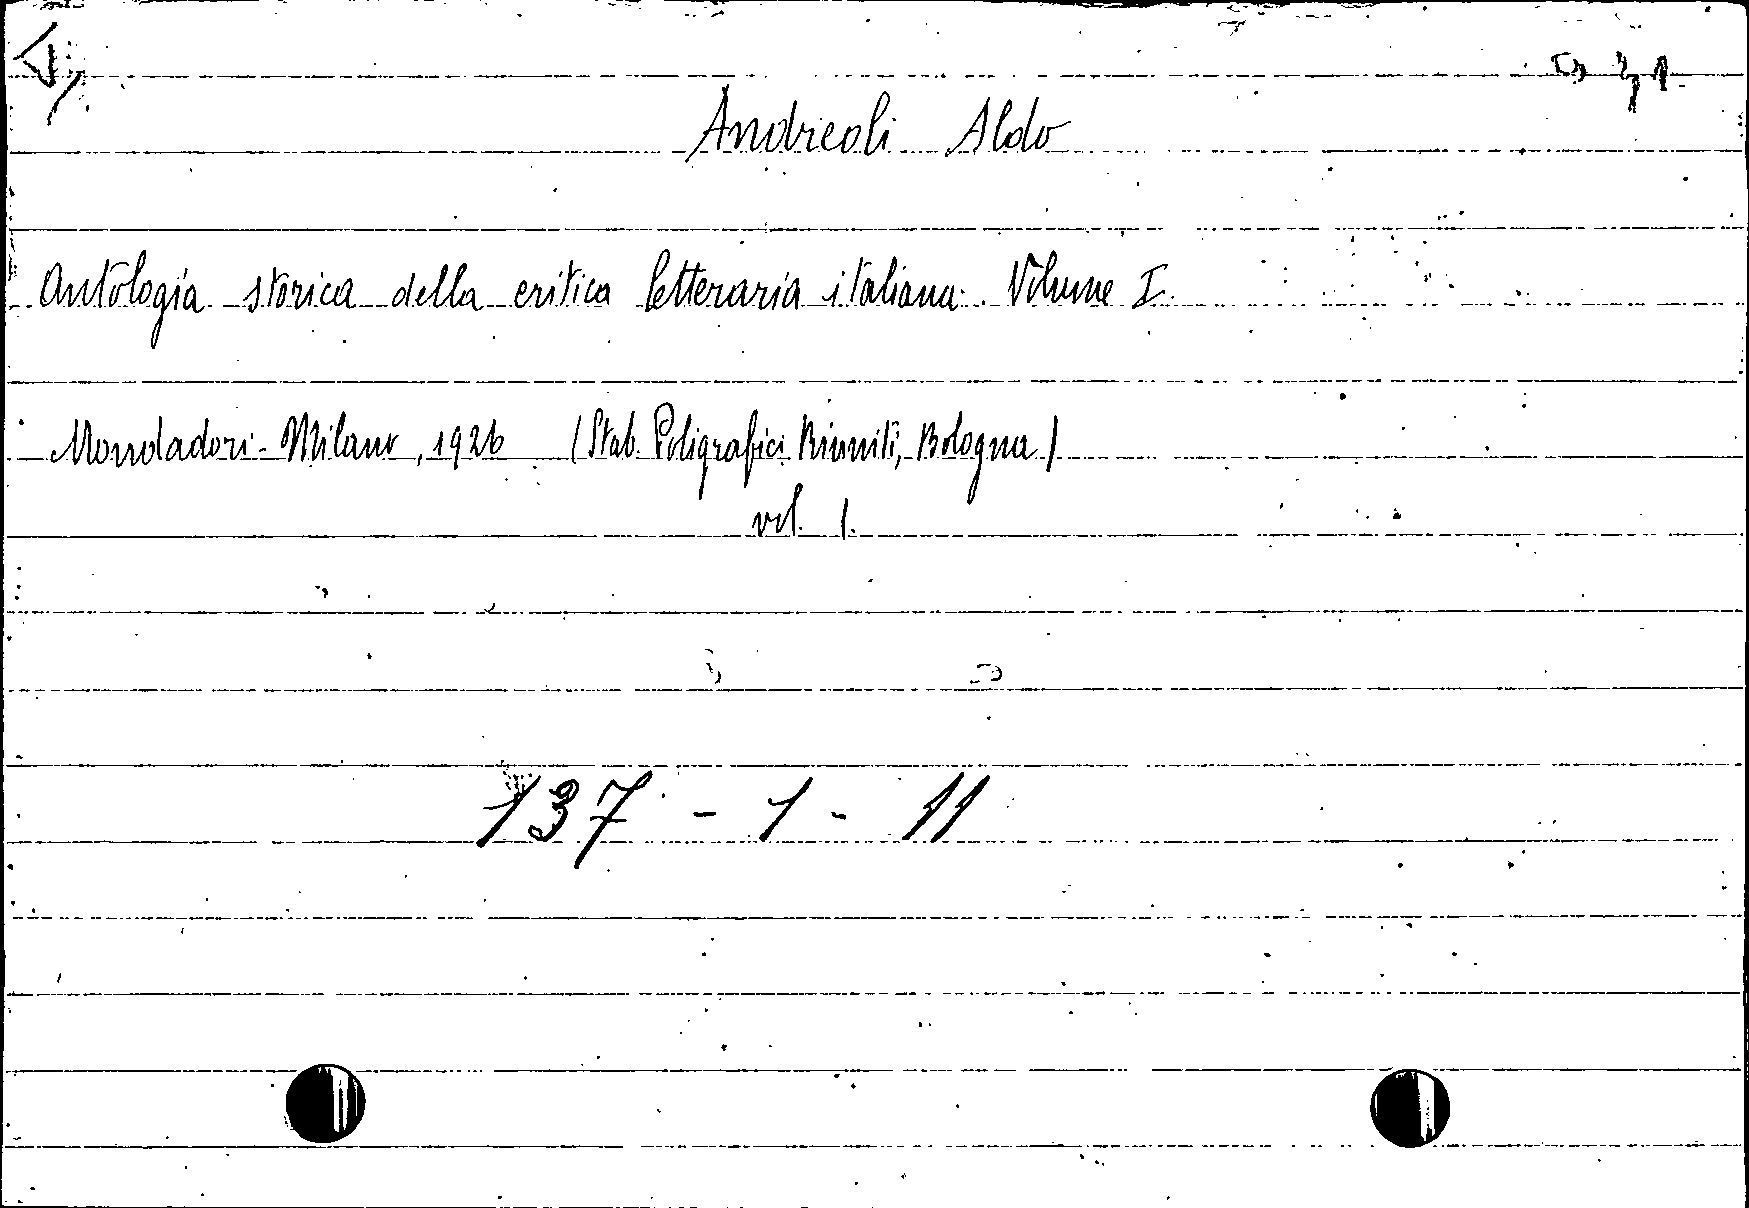 Andreoli Aldo
Antologia storica della critica letteraria italiana. Volume I.
Mondadori - Milano, 1926 (Stab. Poligrafici Riuniti, Bologna)
vol. 1.
137 - 1 - 11